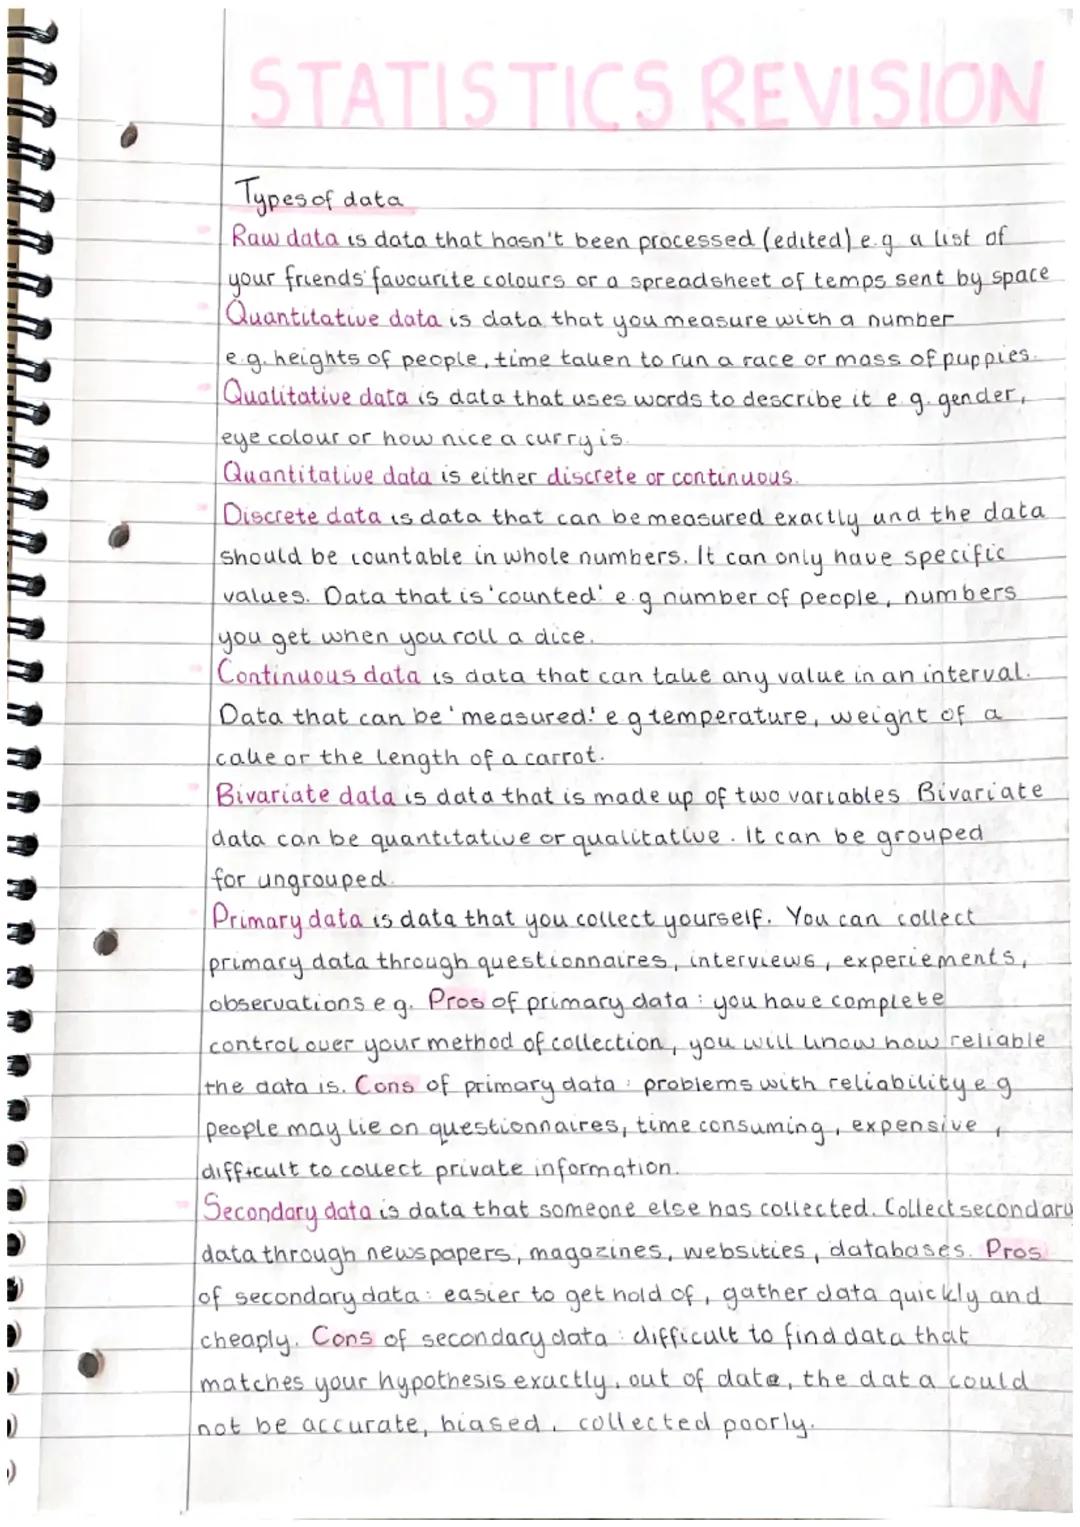 STATISTICS REVISION
Types of data
Raw data is data that hasn't been processed (edited) e.g. a list of
your friends' favourite colours or a spreadsheet of temps sent by space
Quantitative data is data that you measure with a number
e.g. heights of people, time taken to run a race or mass of puppies.
Qualitative data is data that uses words to describe it e.g. gender,
eye colour or how nice a curry is.
Quantitative data is either discrete or continuous.
Discrete data is data that can be measured exactly and the data
should be countable in whole numbers. It can only have specific
values. Data that is 'counted' e.g number of people, numbers
you get when you roll a dice.
Continuous data is data that can take any value in an interval.
Data that can be 'measured.' e g temperature, weight of a
cake or the length of a carrot.
Bivariate data is data that is made up of two variables Bivariate
data can be quantitative or qualitative. It can be grouped
for ungrouped.
Primary data is data that you collect yourself. You can collect
primary data through questionnaires, interviews, experiements,
observations e g. Pros of primary data : you have complete
control over your method of collection, you will know how reliable
the data is. Cons of primary data : problems with reliability e g
people may lie on questionnaires, time consuming, expensive,
difficult to collect private information.
Secondary data is data that someone else has collected. Collect secondary
data through newspapers, magazines, websities, databases. Pros
of secondary data : easier to get hold of, gather data quickly and
cheaply. Cons of secondary data : difficult to find data that
matches your hypothesis exactly, out of date, the data could
not be accurate, biased, collected poorly.